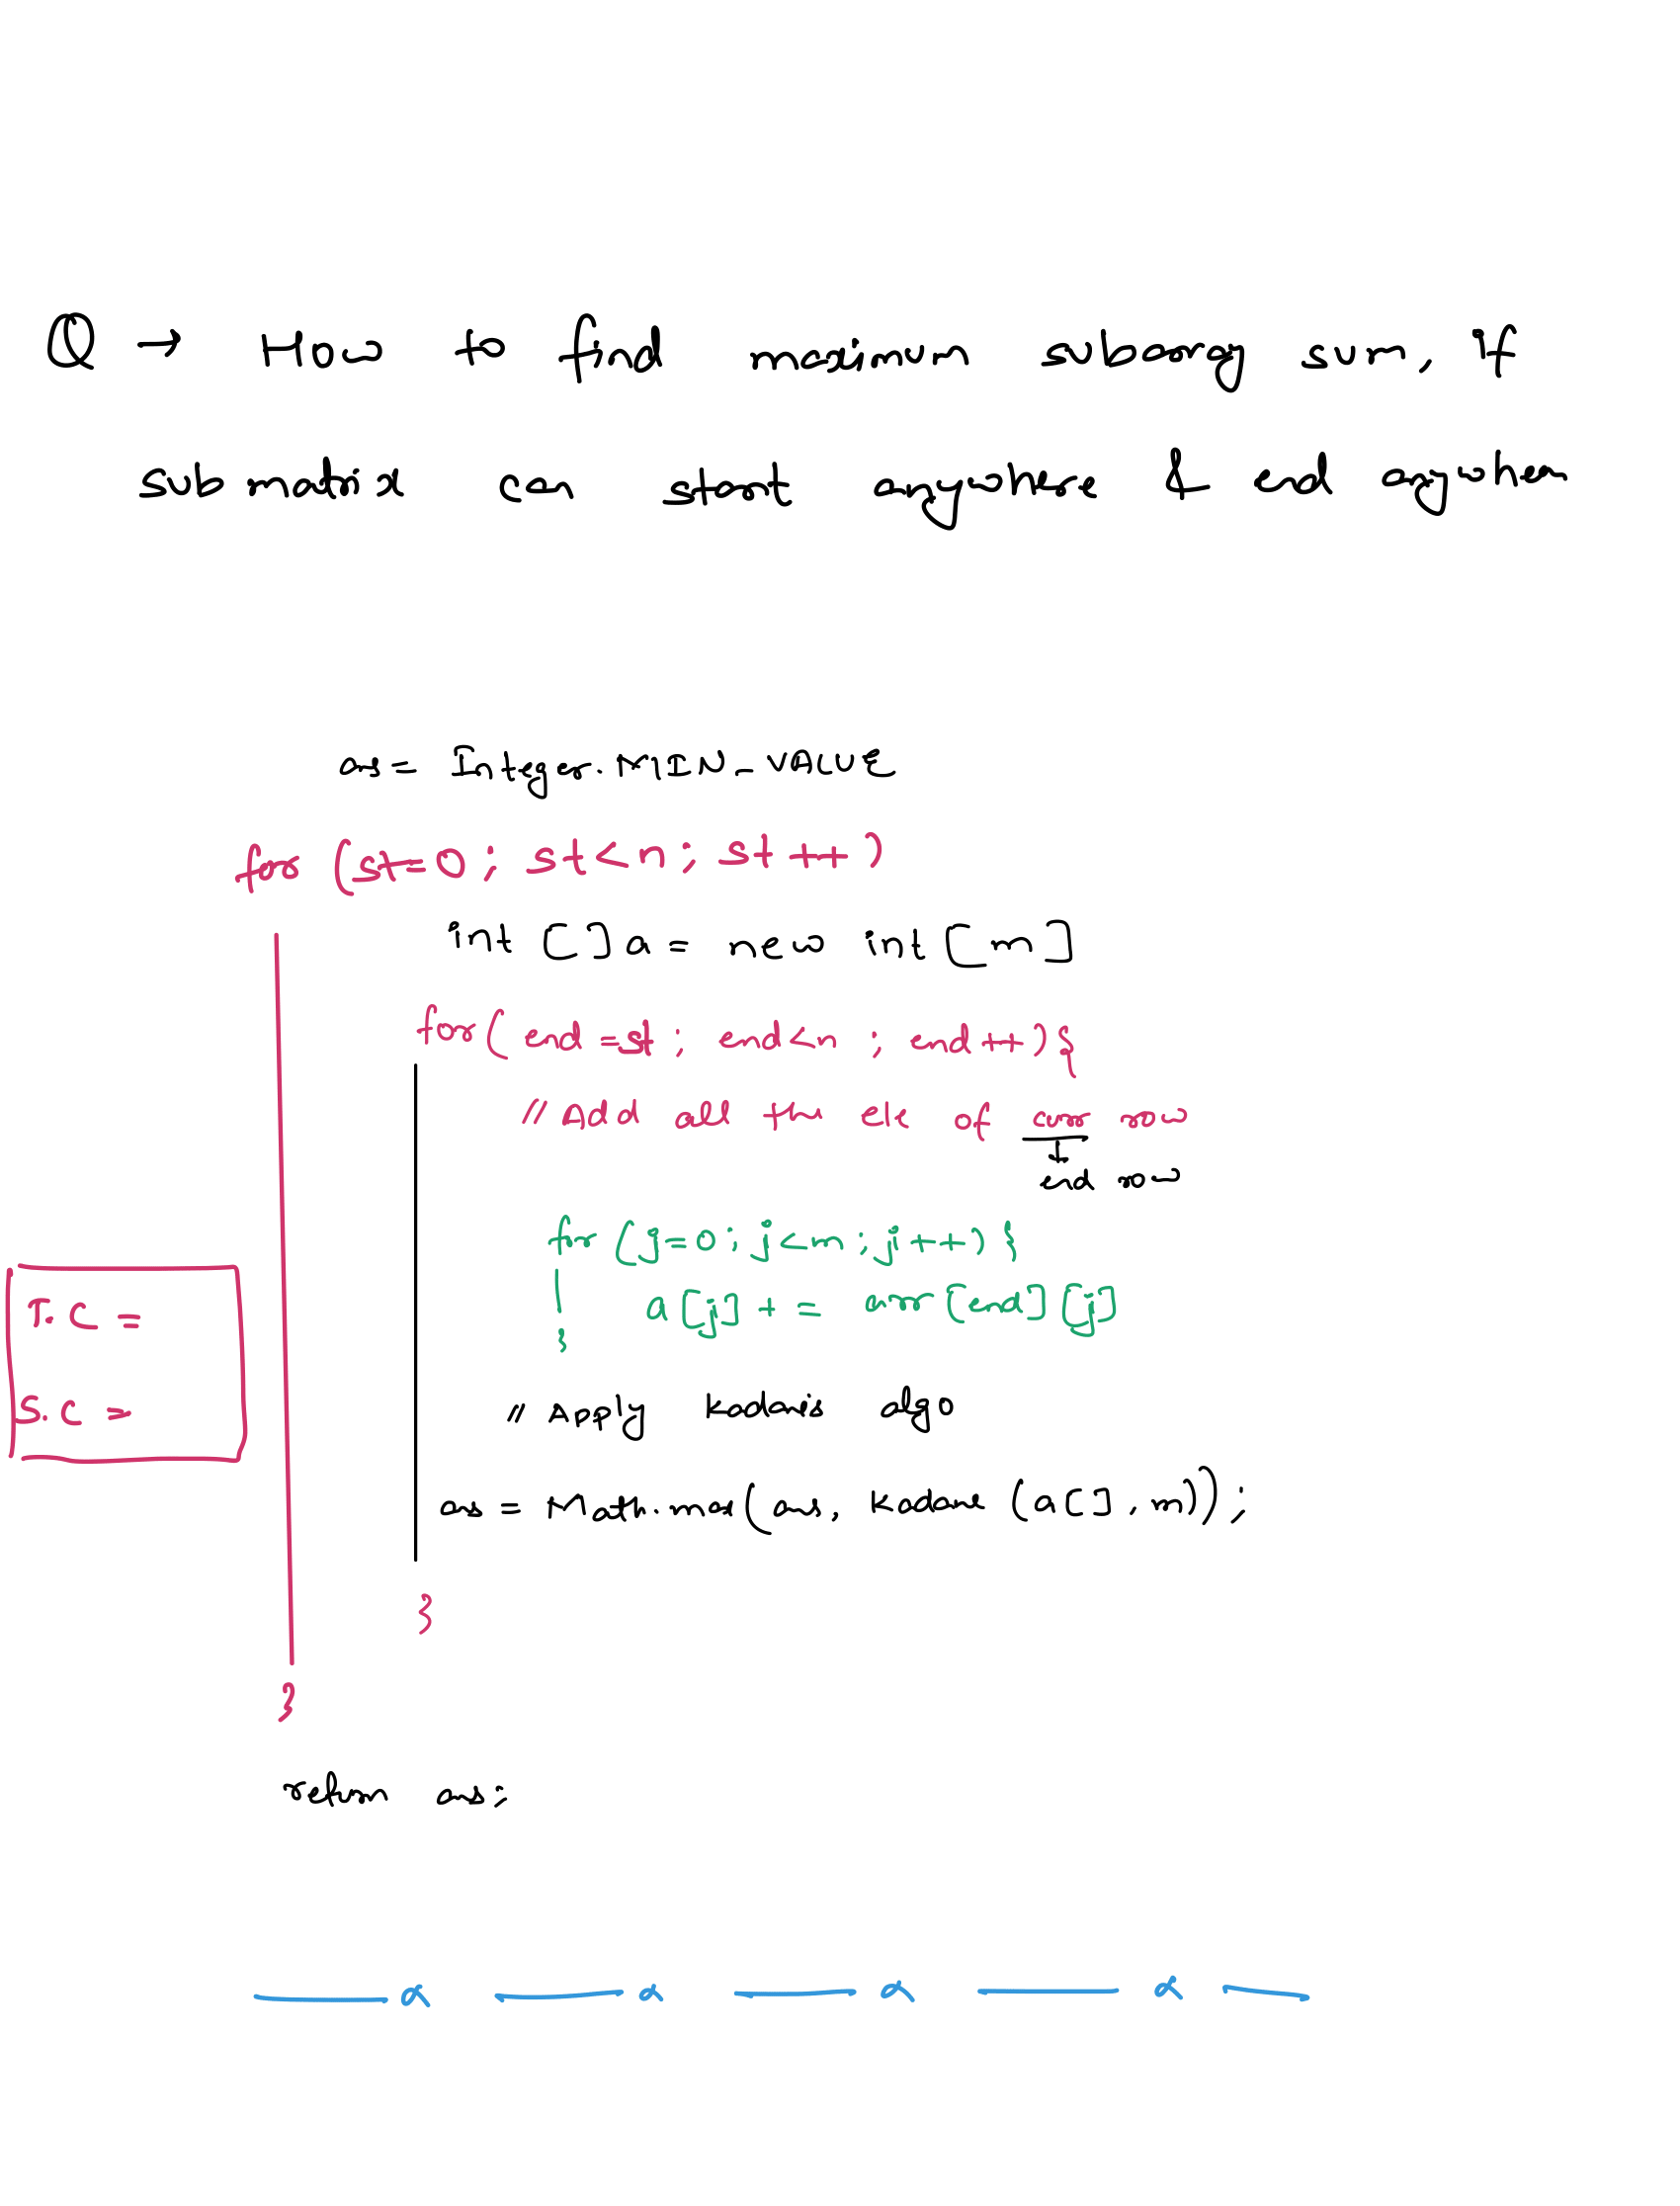 Q → How to find maximum subarray sum, if
submatrix can start anywhere & end anywhere
ans = Integer.MIN_VALUE
for (st=0; st<n; st++)
int []a = new int[m]
for( end=st; end<n; end++){
// Add all the ele of curr row
↓
end row
for (j=0; j<m; j++) {
a[j] += arr[end][j]
}
T.C =
S.C =
// Apply Kadane's algo
ans = Math.max(ans, Kadane (a[], m));
}
}
return ans;